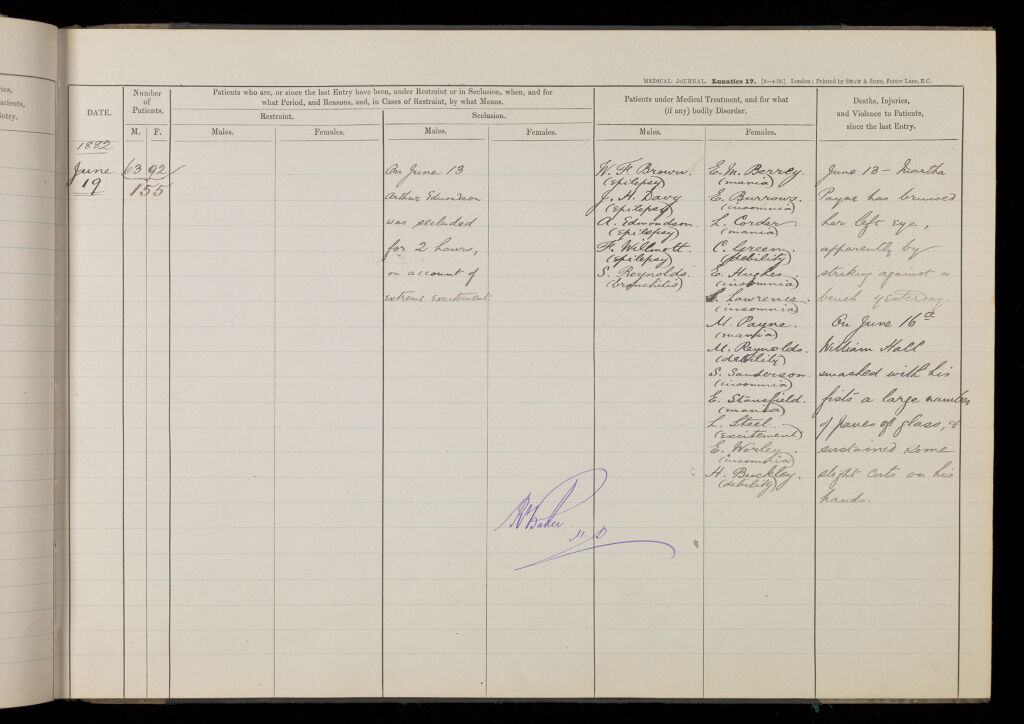 ries,
atients,
ntry.
MEDICAL JOURNAL. Lunatics 17. [2—4-79.] London: Printed by SHAW & SONS, Fetter Lane, E.C.
DATE.
Number
of
Patients.
M. F.
Patients who are, or since the last Entry have been, under Restraint or in Seclusion, when, and for
what Period, and Reasons, and, in Cases of Restraint, by what Means.
Restraint.
Males. Females.
Seclusion.
Males. Females.
Patients under Medical Treatment, and for what
(if any) bodily Disorder.
Males. Females.
Deaths, Injuries,
and Violence to Patients,
since the last Entry.
1882
June
19
63 92
155
On June 13
Arthur Edmondson
was secluded
for 2 hours,
on account of
extreme excitement
W. F. Brown.
(epilepsy)
J. H. Davy
(epilepsy)
A. Edmondson
(epilepsy)
F. Willmott.
(epilepsy)
S. Reynolds.
(bronchitis)
E. M. Berrey
(mania)
E. Burrows.
(insomnia)
L. Corder
(mania)
C. Green.
(debility)
E. Hughes.
(insomnia)
Lawrence.
(insomnia)
M. Payne.
(mania)
M. Reynolds.
(debility)
S. Sanderson.
(insomnia)
E. Stansfield.
(mania)
L. Steel.
(excitement)
E. Worley.
(insomnia)
H. Buckley.
(debility)
June 13 - Martha
Payne has bruised
her left eye,
apparently by
striking against a
bench yesterday.
On June 16th
William Hall
smashed with his
fists a large number
of panes of glass, &
sustained some
slight cuts on his
hands.
Baker
M.D